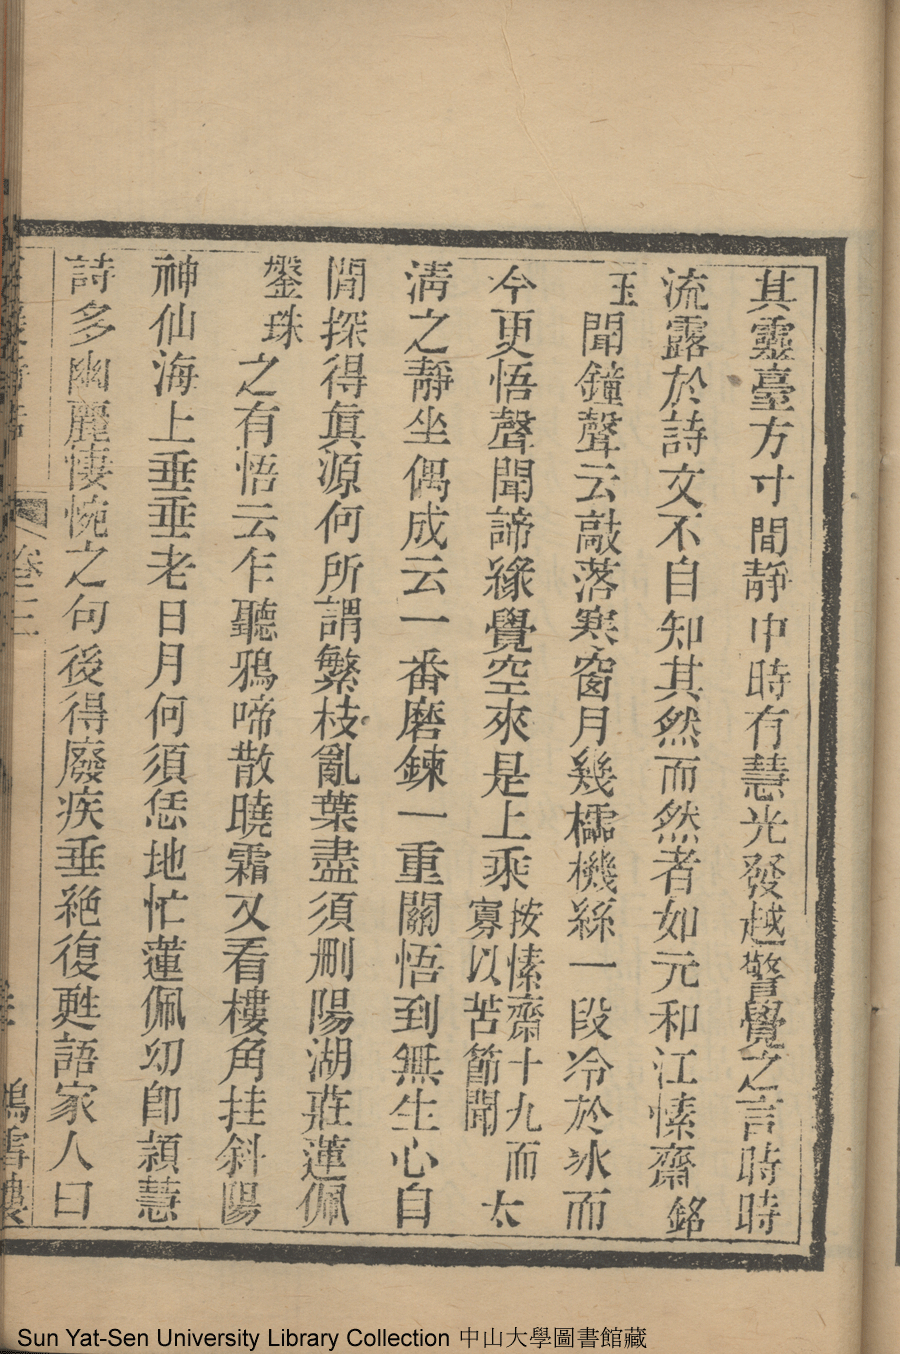 其靈臺方寸間靜中時有慧光發越警覺之言時時
流露於詩文不自知其然而然者如元和江愫齋銘
玉聞鐘聲云敲落寒窗月幾橒機絲一段冷於冰而
今更悟聲聞諦緣覺空來是上乘按愫齋十九而寡以苦節聞太
淸之靜坐偶成云一番磨鍊一重關悟到無生心自
閒探得眞源何所謂繁枝亂葉盡須刪陽湖莊蓮佩
盤珠之有悟云乍聽鴉啼散曉霜又看樓角挂斜陽
神仙海上垂垂老日月何須恁地忙蓮佩幼卽潁慧
詩多幽麗悽惋之句後得廢疾垂絕復甦語家人曰
卷三
鴻雪樓
Sun Yat-Sen University Library Collection 中山大學圖書館藏